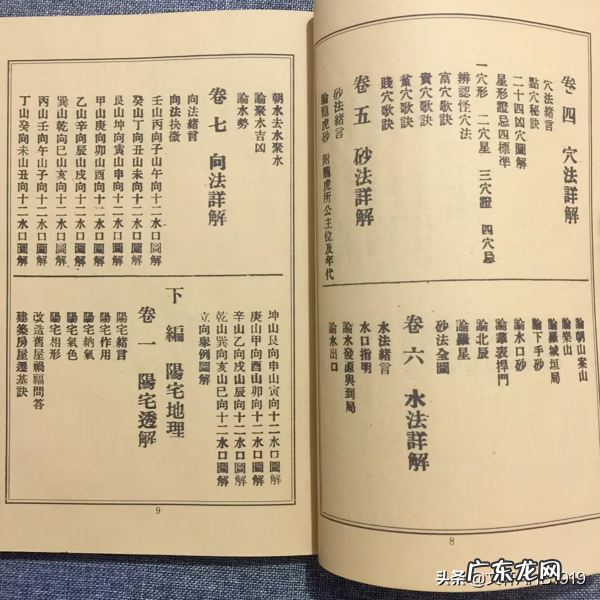 卷四 穴法詳解
穴法緒言
點穴秘訣
二十四凶穴圖解
星形證忌四標準
一穴形 二穴星 三穴證 四穴忌
辨認怪穴法
富穴歌訣
貴穴歌訣
貧穴歌訣
賤穴歌訣
卷五 砂法詳解
砂法緒言
論龍虎砂 附龍虎所公主位及年代
論朝山案山
論樂山
論羅城垣局
論下手砂
論水口砂
論華表捍門
論北辰
論羅星
砂法全圖
卷六 水法詳解
水法緒言
水口指明
論水發源與到局
論水出口
8
朝水去水聚水
論聚水吉凶
論水勢
卷七 向法詳解
向法緒言
向法抉微
壬山丙向子山午向十二水口圖解
癸山丁向丑山未向十二水口圖解
艮山坤向寅山申向十二水口圖解
甲山庚向卯山酉向十二水口圖解
乙山辛向辰山戌向十二水口圖解
巽山乾向巳山亥向十二水口圖解
丙山壬向午山子向十二水口圖解
丁山癸向未山丑向十二水口圖解
坤山艮向申山寅向十二水口圖解
庚山甲向酉山卯向十二水口圖解
辛山乙向戌山辰向十二水口圖解
乾山巽向亥山巳向十二水口圖解
立向舉例圖解
下編 陽宅地理
卷一 陽宅透解
陽宅緒言
陽宅作用
陽宅納氣
陽宅氣色
陽宅相形
改造舊屋禍福問答
建築房屋選基訣
9
头条
919
广东龙网